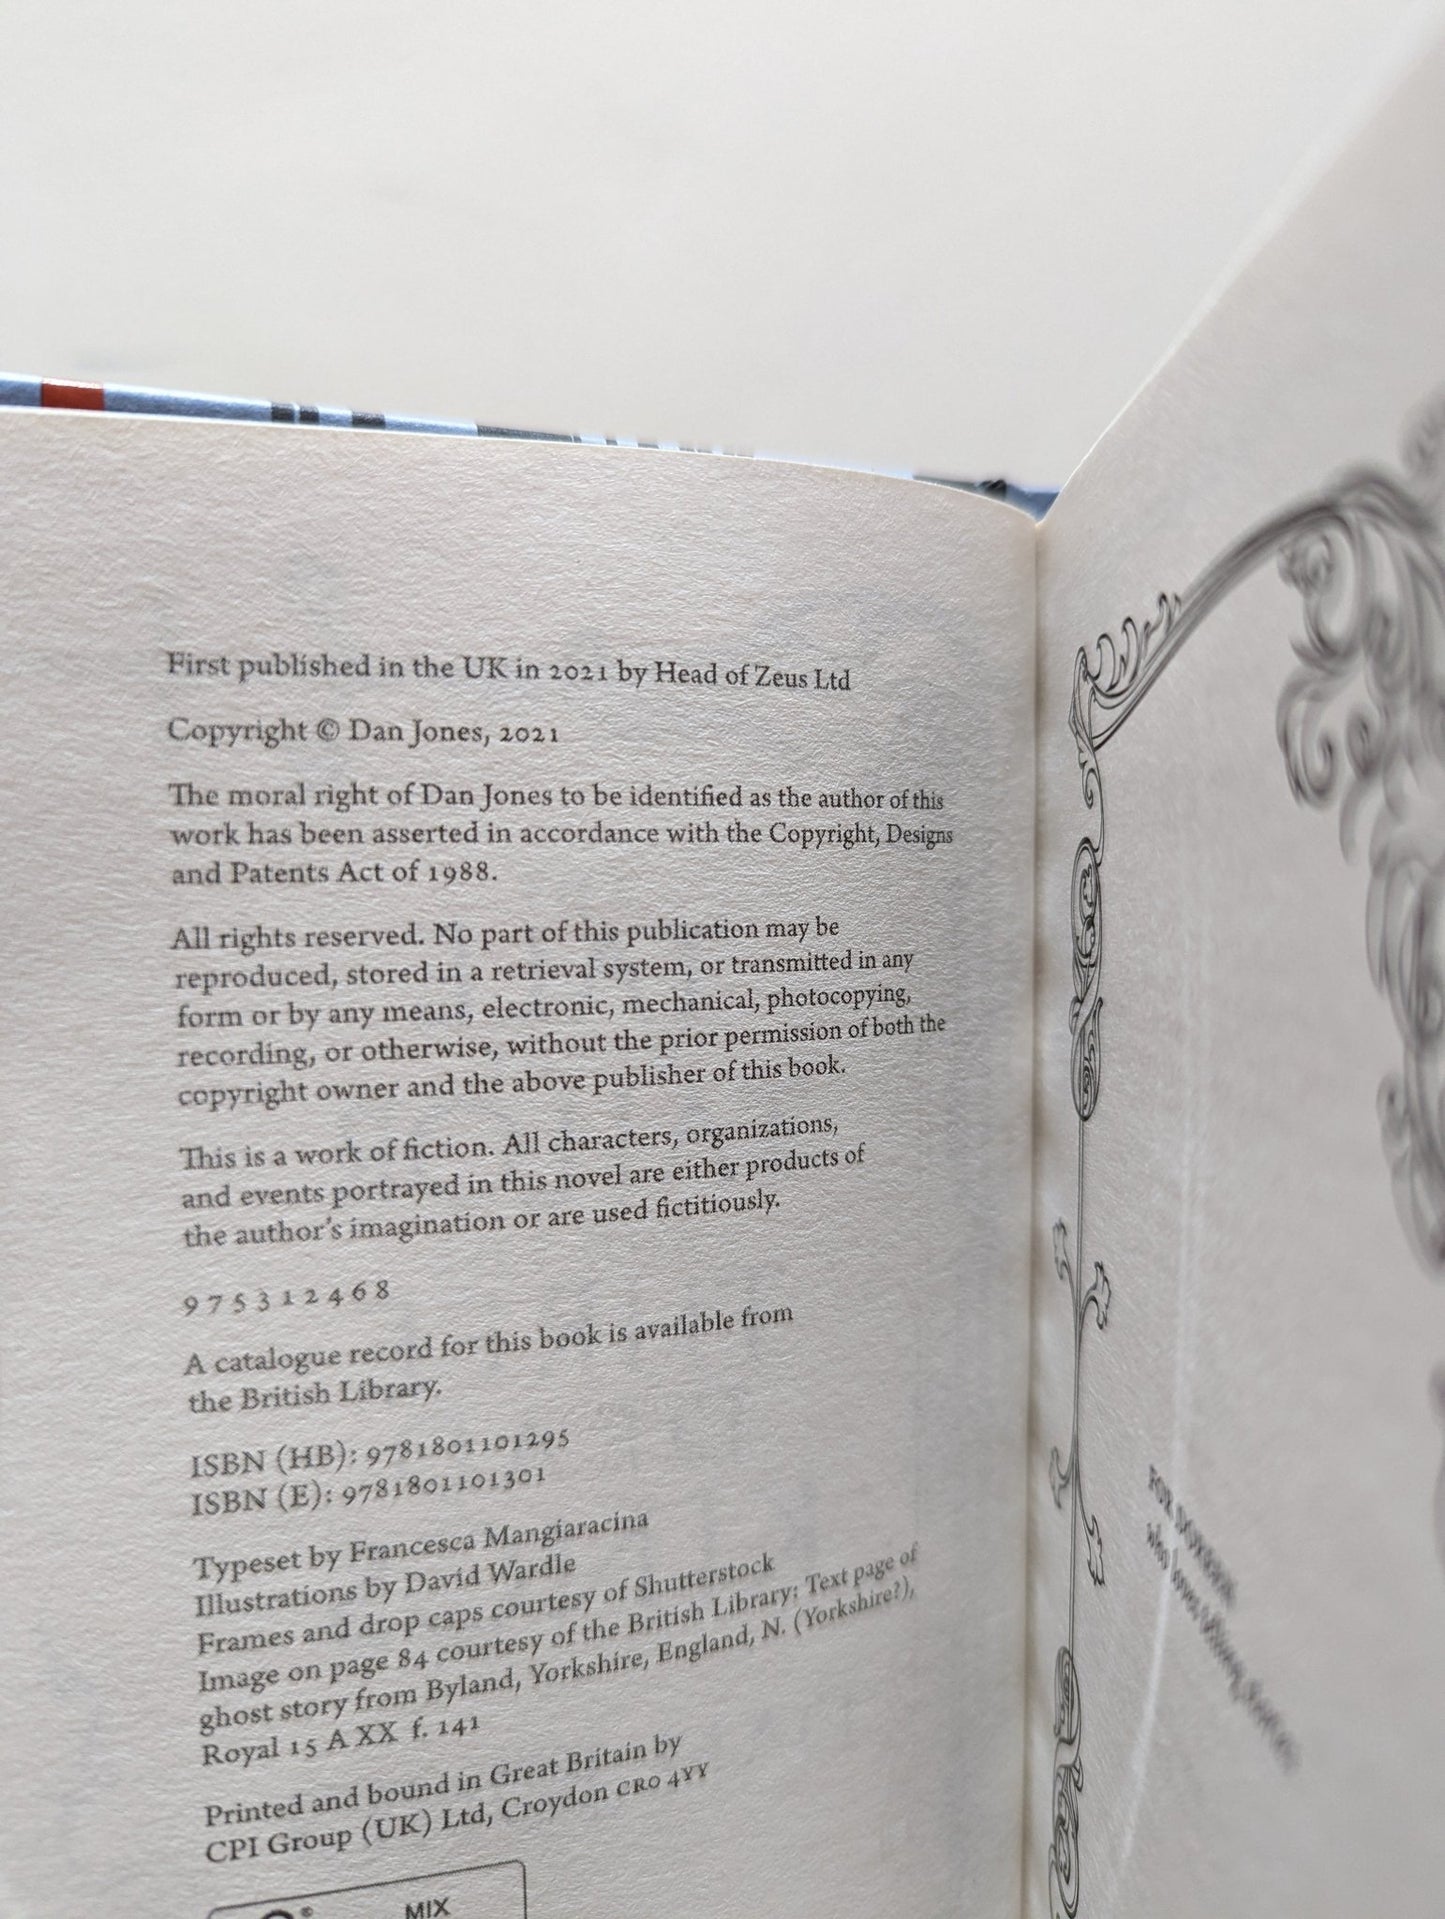 First published in the UK in 2021 by Head of Zeus Ltd
Copyright © Dan Jones, 2021
The moral right of Dan Jones to be identified as the author of this
work has been asserted in accordance with the Copyright, Designs
and Patents Act of 1988.
All rights reserved. No part of this publication may be
reproduced, stored in a retrieval system, or transmitted in any
form or by any means, electronic, mechanical, photocopying,
recording, or otherwise, without the prior permission of both the
copyright owner and the above publisher of this book.
This is a work of fiction. All characters, organizations,
and events portrayed in this novel are either products of
the author's imagination or are used fictitiously.
9 7 5 3 1 2 4 6 8
A catalogue record for this book is available from
the British Library.
ISBN (HB): 9781801101295
ISBN (E): 9781801101301
Typeset by Francesca Mangiaracina
Illustrations by David Wardle
Frames and drop caps courtesy of Shutterstock
Image on page 84 courtesy of the British Library: Text page of
ghost story from Byland, Yorkshire, England, N. (Yorkshire?),
Royal 15 A XX f. 141
Printed and bound in Great Britain by
CPI Group (UK) Ltd, Croydon CR0 4YY
MIX
FOR
who loves